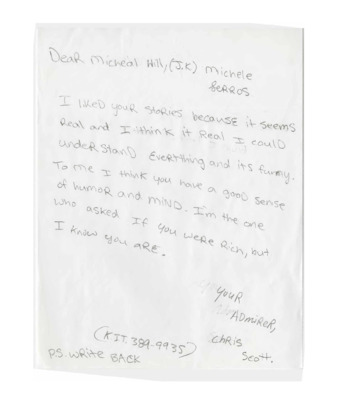 Dear Micheal Hill, (J.K) Michele
Serros
I liked your stories because it seems
Real and I think it Real I could
understand everything and its funny.
To me I think you have a good sense
of humor and mind. I'm the one
who asked If you were Rich, but
I know you are.
your
Admirer,
Chris
Scott.
(K.I.T. 389-9935)
P.S. write BACK